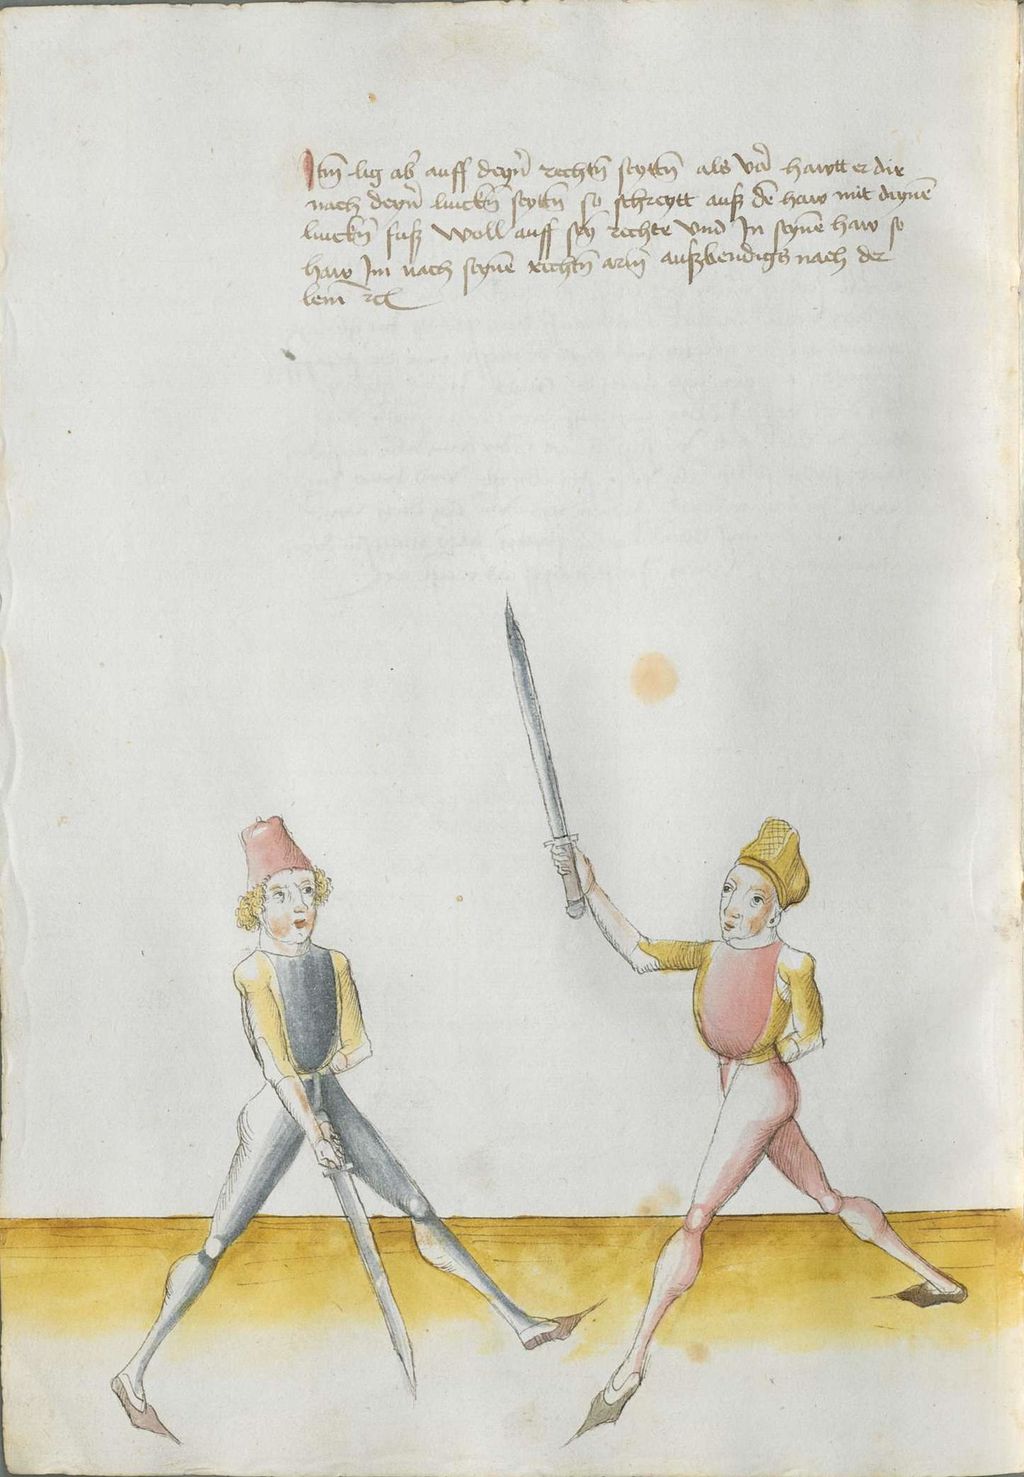 Itm̄ lig ab̄ auff deyn̄ rechtn̄ seyttn̄ als vor̄ hawtt er dir
nach deyn̄ linckn̄ seyttn̄ so schreytt auß dē haw mit deynē
linckn̄ fuß woll auff seȳ rechte vnd In seynē haw so
haw Im nach seynē rechtn̄ arm̄ außbendigs nach der
lem̄ rc